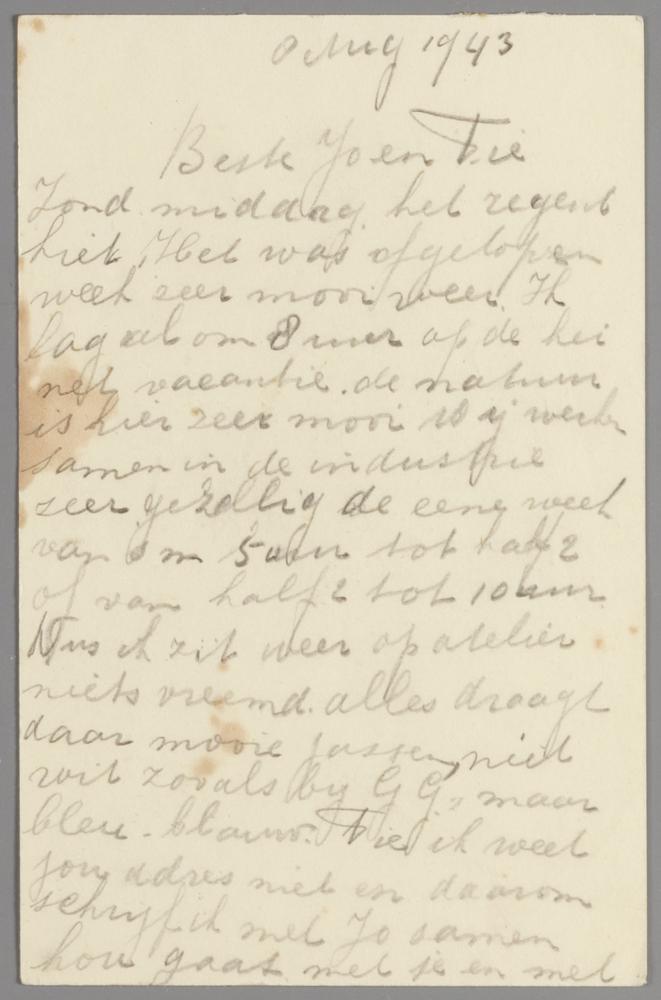 Aug 1943
Beste Jo en Fie
Zond. middag. het regent
hier. Het was afgelopen
week zeer mooi weer. Ik
lag al om 8 uur op de hei
net vacantie. de natuur
is hier zeer mooi Wij werken
samen in de industrie
zeer gezellig de eene week
van om 5 uur tot half 2
of van half 2 tot 10 uur.
Dus ik zit weer op atelier
niets vreemd. alles draagt
daar mooie jassen, niet
wit zooals by G G, maar
bleu-blauw. Fie ik weet
jou adres niet en daarom
schryf ik met Jo samen
hou gaat met je en met